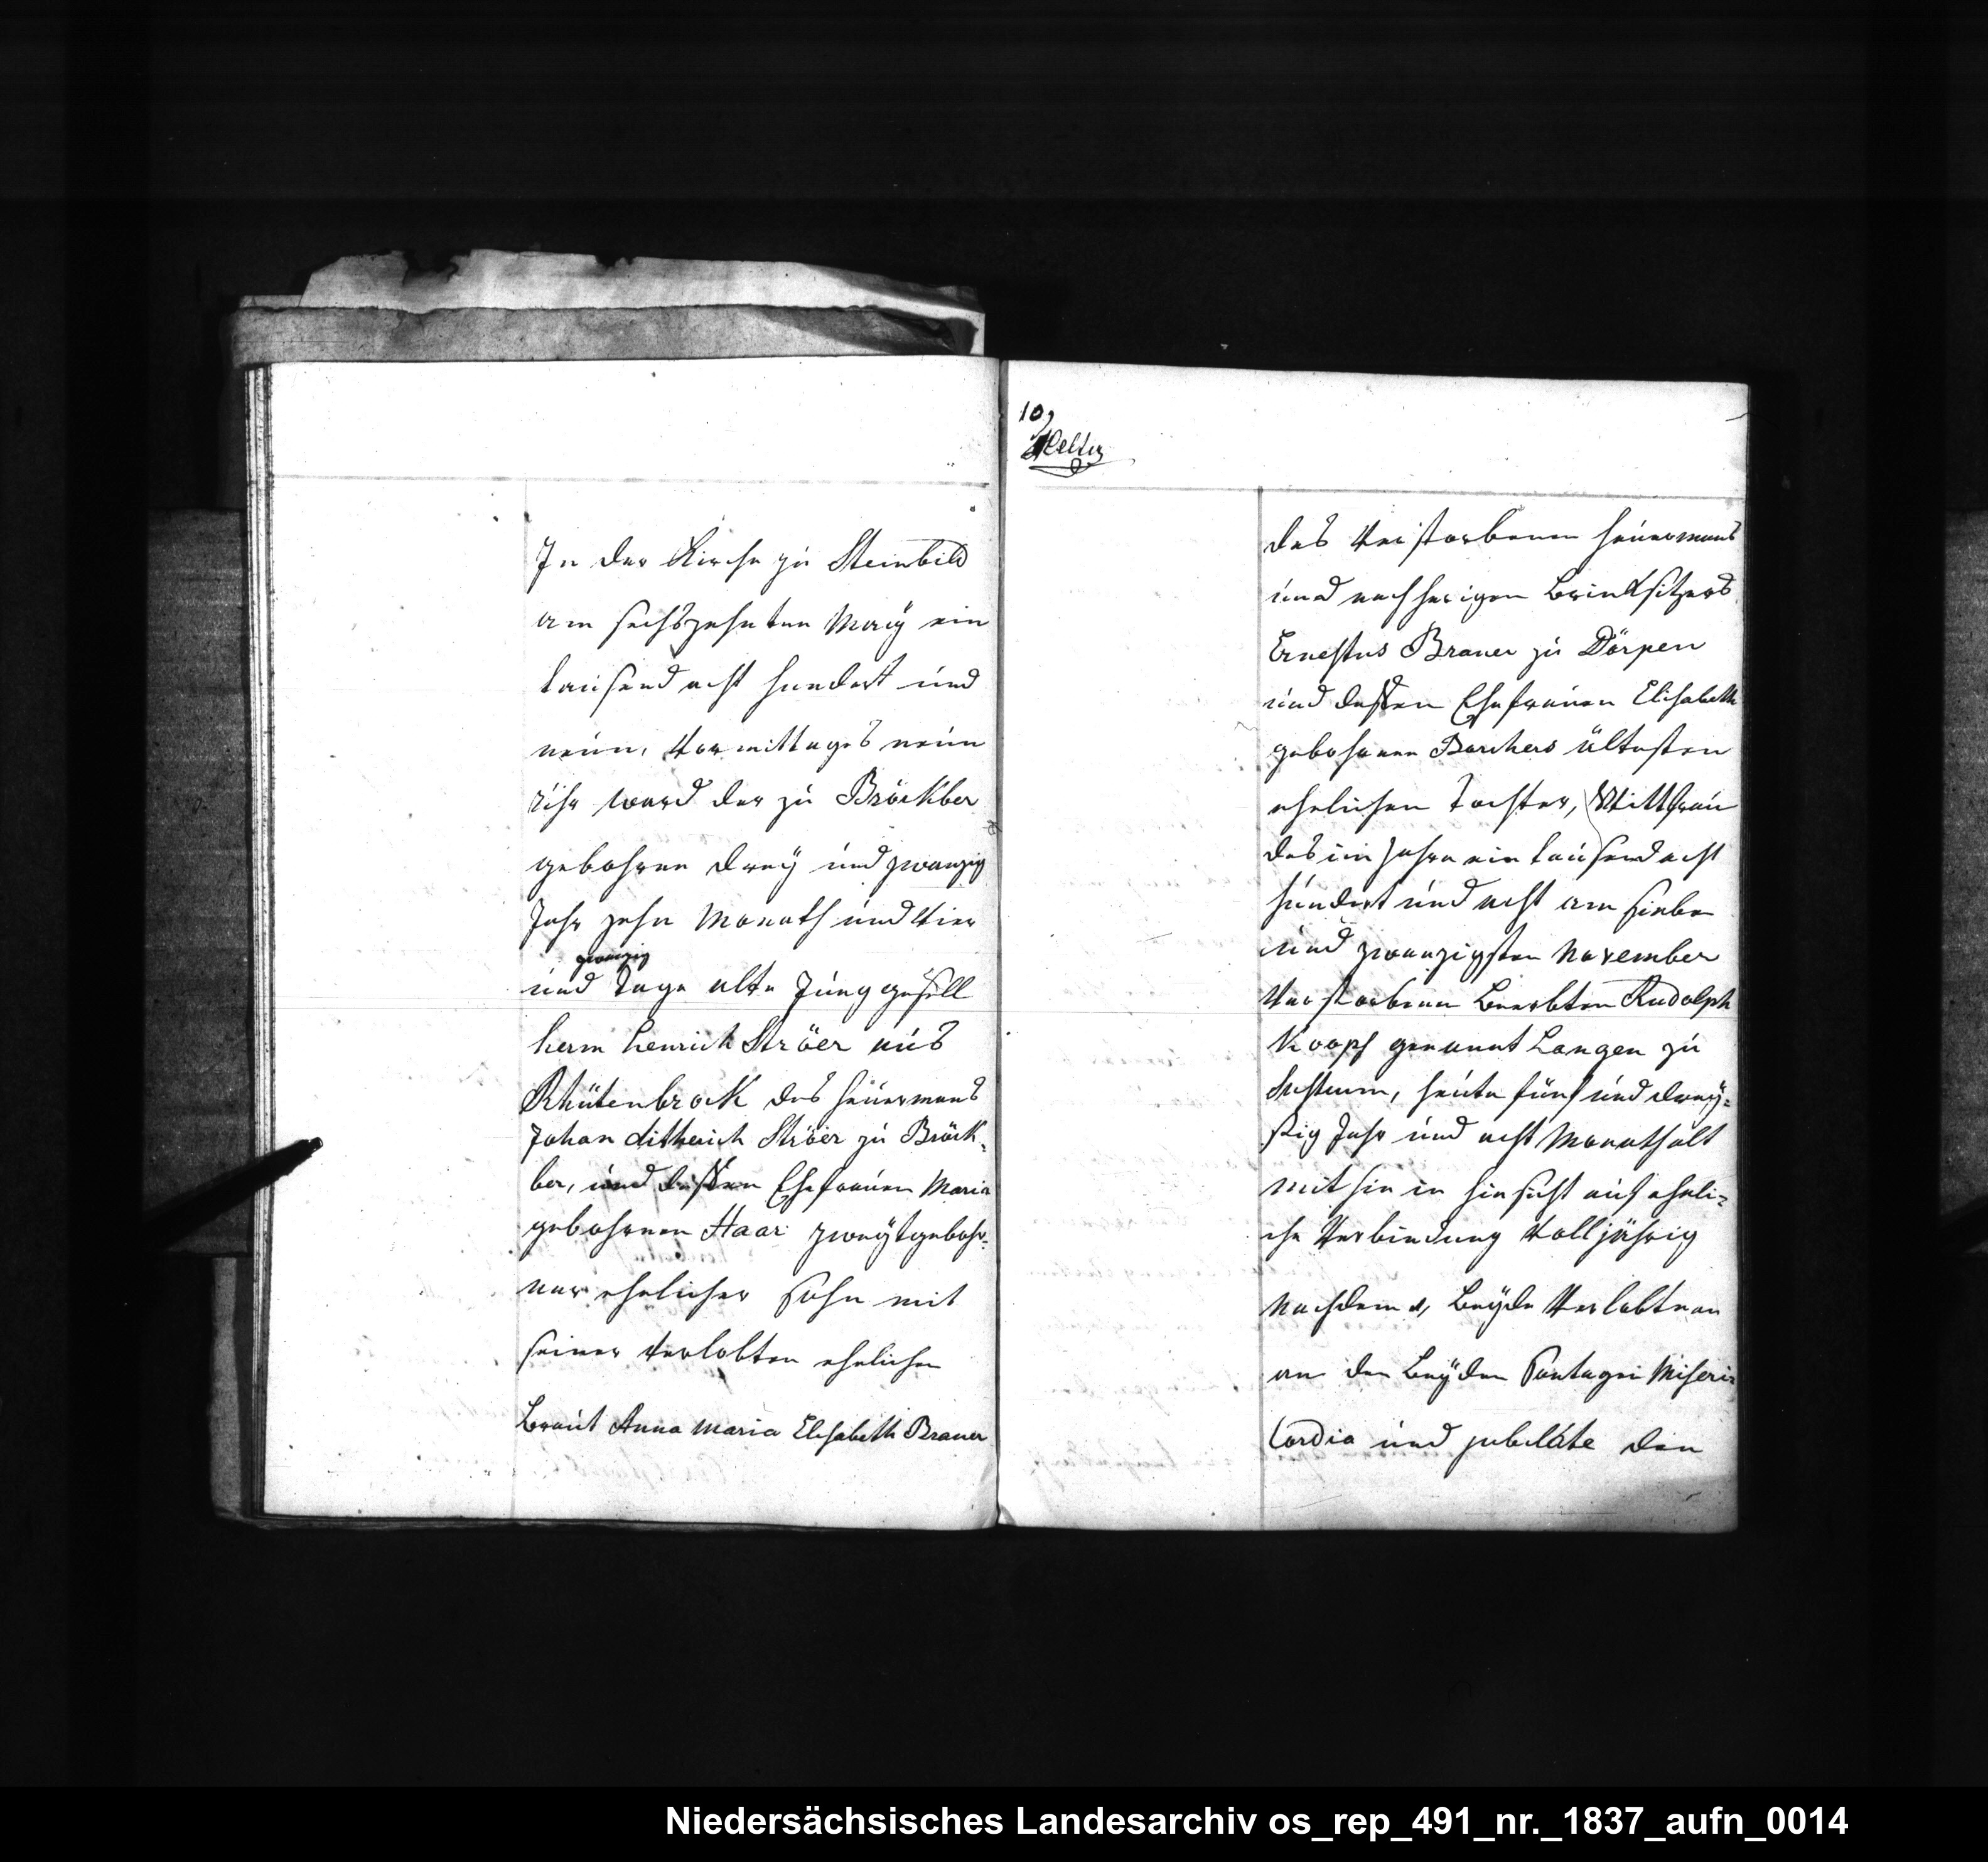 In der Kirche zu Steinbild
am sechszehnten May ein
tausend acht hundert und
neun, Vormittages neun
Uhr ward der zu Bröckber
gebohrne drey und zwanzig
Jahr zehn Monath und vier
zwanzig
und Tage alte Junggesell
herm henrich Ströer aus
Rhütenbrock des heuermans
Johan ditherich Ströer zu Bröck-
ber, und dessen Ehefrauen Maria
gebohrnen Haar zweytgebohr-
ner ehelicher Sohn mit
seiner verlobten ehelichen
Braut Anna Maria Elisabeth Braner
10
des Verstorbenen heuermans
und nachherigen Brinksitzers
Ernestus Braner zu Dörpen
und dessen Ehefrauen Elisabeth
gebohrnen Borchers ältesten
ehelichen Tochter, Wittfrau
des im Jahre ein tausend acht
hundert und acht am sieben
und zwanzigsten November
Verstorbenen Beerbten Rudolph
Koops genannt Langen zu
Sustrum, heute fünf und drey-
ßig Jahr und acht Monath alt
mithin in hinsicht auf eheli-
che Verbindung volljährig
Nachdem Beyde Verlobten
an den Beyden Sontagen Miseri-
Cordia und jubiláte den
Niedersächsisches Landesarchiv os_rep_491_nr._1837_aufn_0014